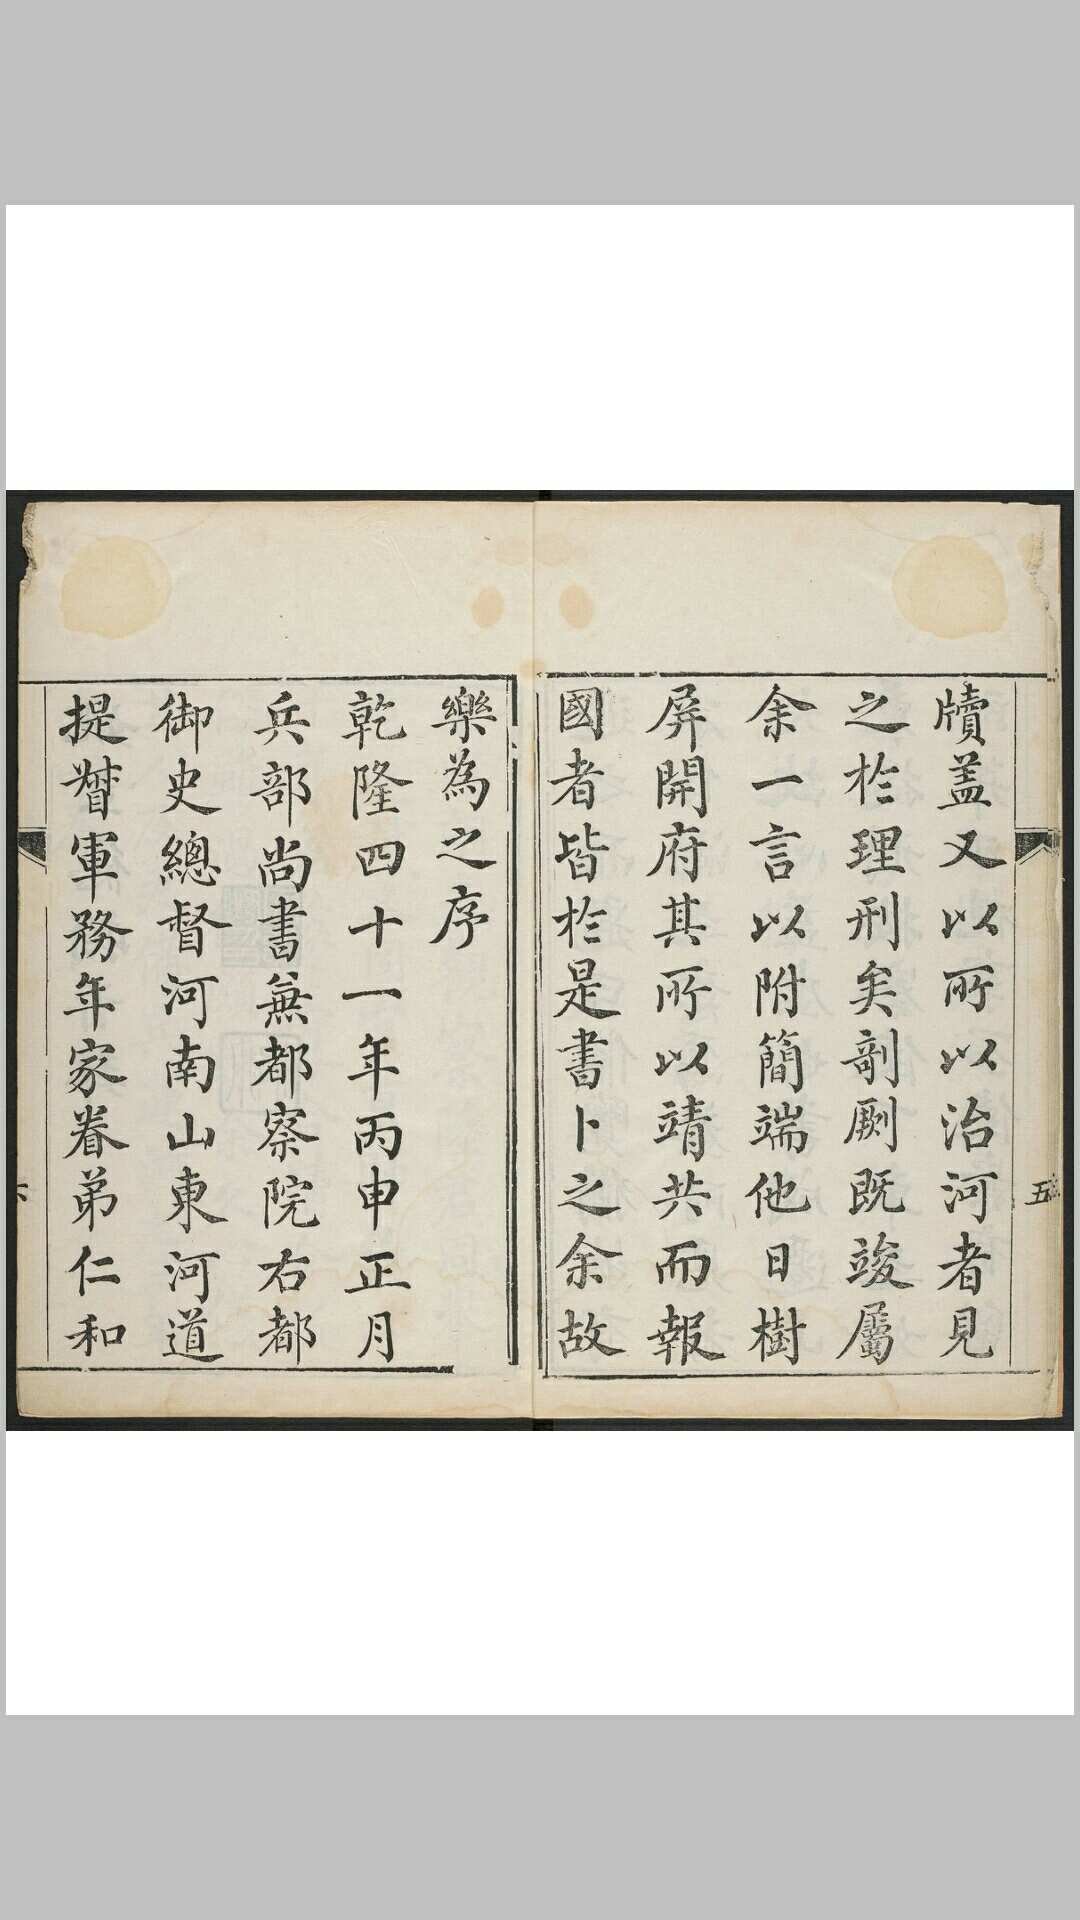 牘盖又以所以治河者見
之於理刑矣剞劂既竣屬
余一言以附簡端他日樹
屏開府其所以靖共而報
國者皆於是書卜之余故
樂為之序
乾隆四十一年丙申正月
兵部尚書兼都察院右都
御史總督河南山東河道
提督軍務年家眷弟仁和
五